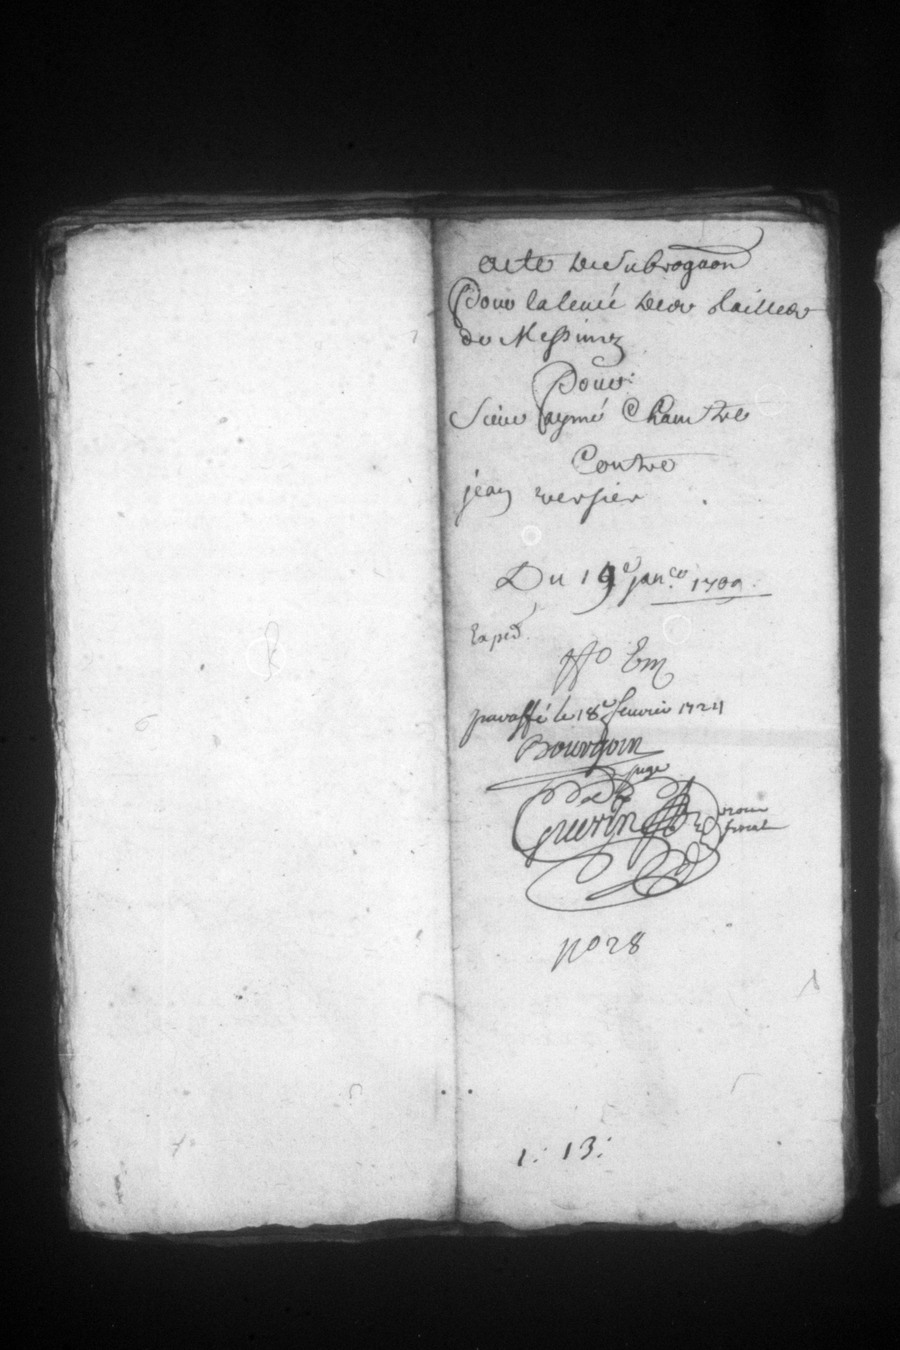 acte de subrogaon
Pour la levée des tailles
de Messimy
Pour
Sieur aymé Chamtre
Contre
jean versier
Du 19e janer 1709
Exped
paraffé le 18e feuvrier 1724
Bourgoin
juge
Guerin
fiscal
no 28
1: 13: